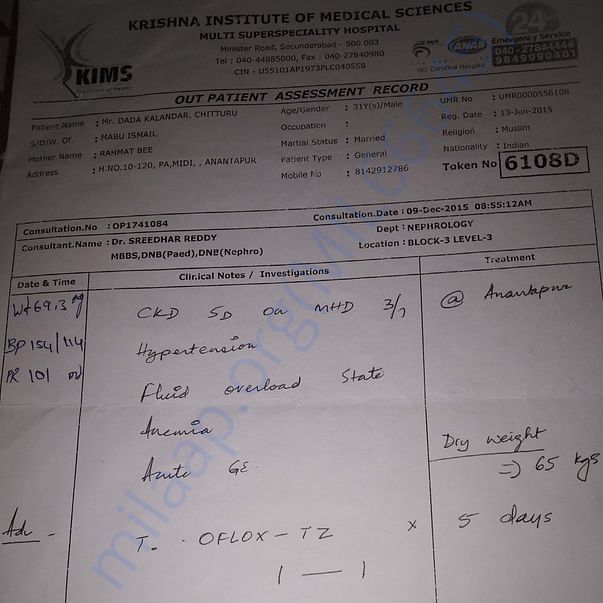 KRISHNA INSTITUTE OF MEDICAL SCIENCES
MULTI SUPERSPECIALITY HOSPITAL
Minister Road, Secunderabad - 500 003
Tel : 040-44885000, Fax : 040-27840980
CIN - U55101AP1973PLC040558
KIMS
ISO Certified Hospital
NABH
24
Emergency Service
040-27844444
9849990401
OUT PATIENT ASSESSMENT RECORD
Patient Name : Mr. DADA KALANDAR. CHITTURU
Age/Gender : 31Y(s)/Male
UMR No : UMR0000556108
S/D/W. Of. : MABU ISMAIL
Occupation :
Reg. Date : 13-Jun-2015
Mother Name : RAHMAT BEE
Martial Status : Married
Religion : Muslim
Address : H.NO.10-120, PA,MIDI, , ANANTAPUR
Patient Type : General
Nationality : Indian
Mobile No : 8142912786
Token No 6108D
Consultation.No : OP1741084
Consultation.Date : 09-Dec-2015 08:55:12AM
Consultant.Name : Dr. SREEDHAR REDDY
Dept : NEPHROLOGY
MBBS,DNB(Paed),DNB(Nephro)
Location : BLOCK-3 LEVEL-3
Date & Time
Clinical Notes / Investigations
Treatment
Wt 69.3 kg
CKD 5D on MHD 3/7
@ Anantapur
BP 154/114
Hypertension
PR 101
Fluid overload State
Anemia
Dry weight
Acute GE.
=> 65 kgs
Adv -
T. OFLOX - TZ x 5 days
1 — 1
milaap.org